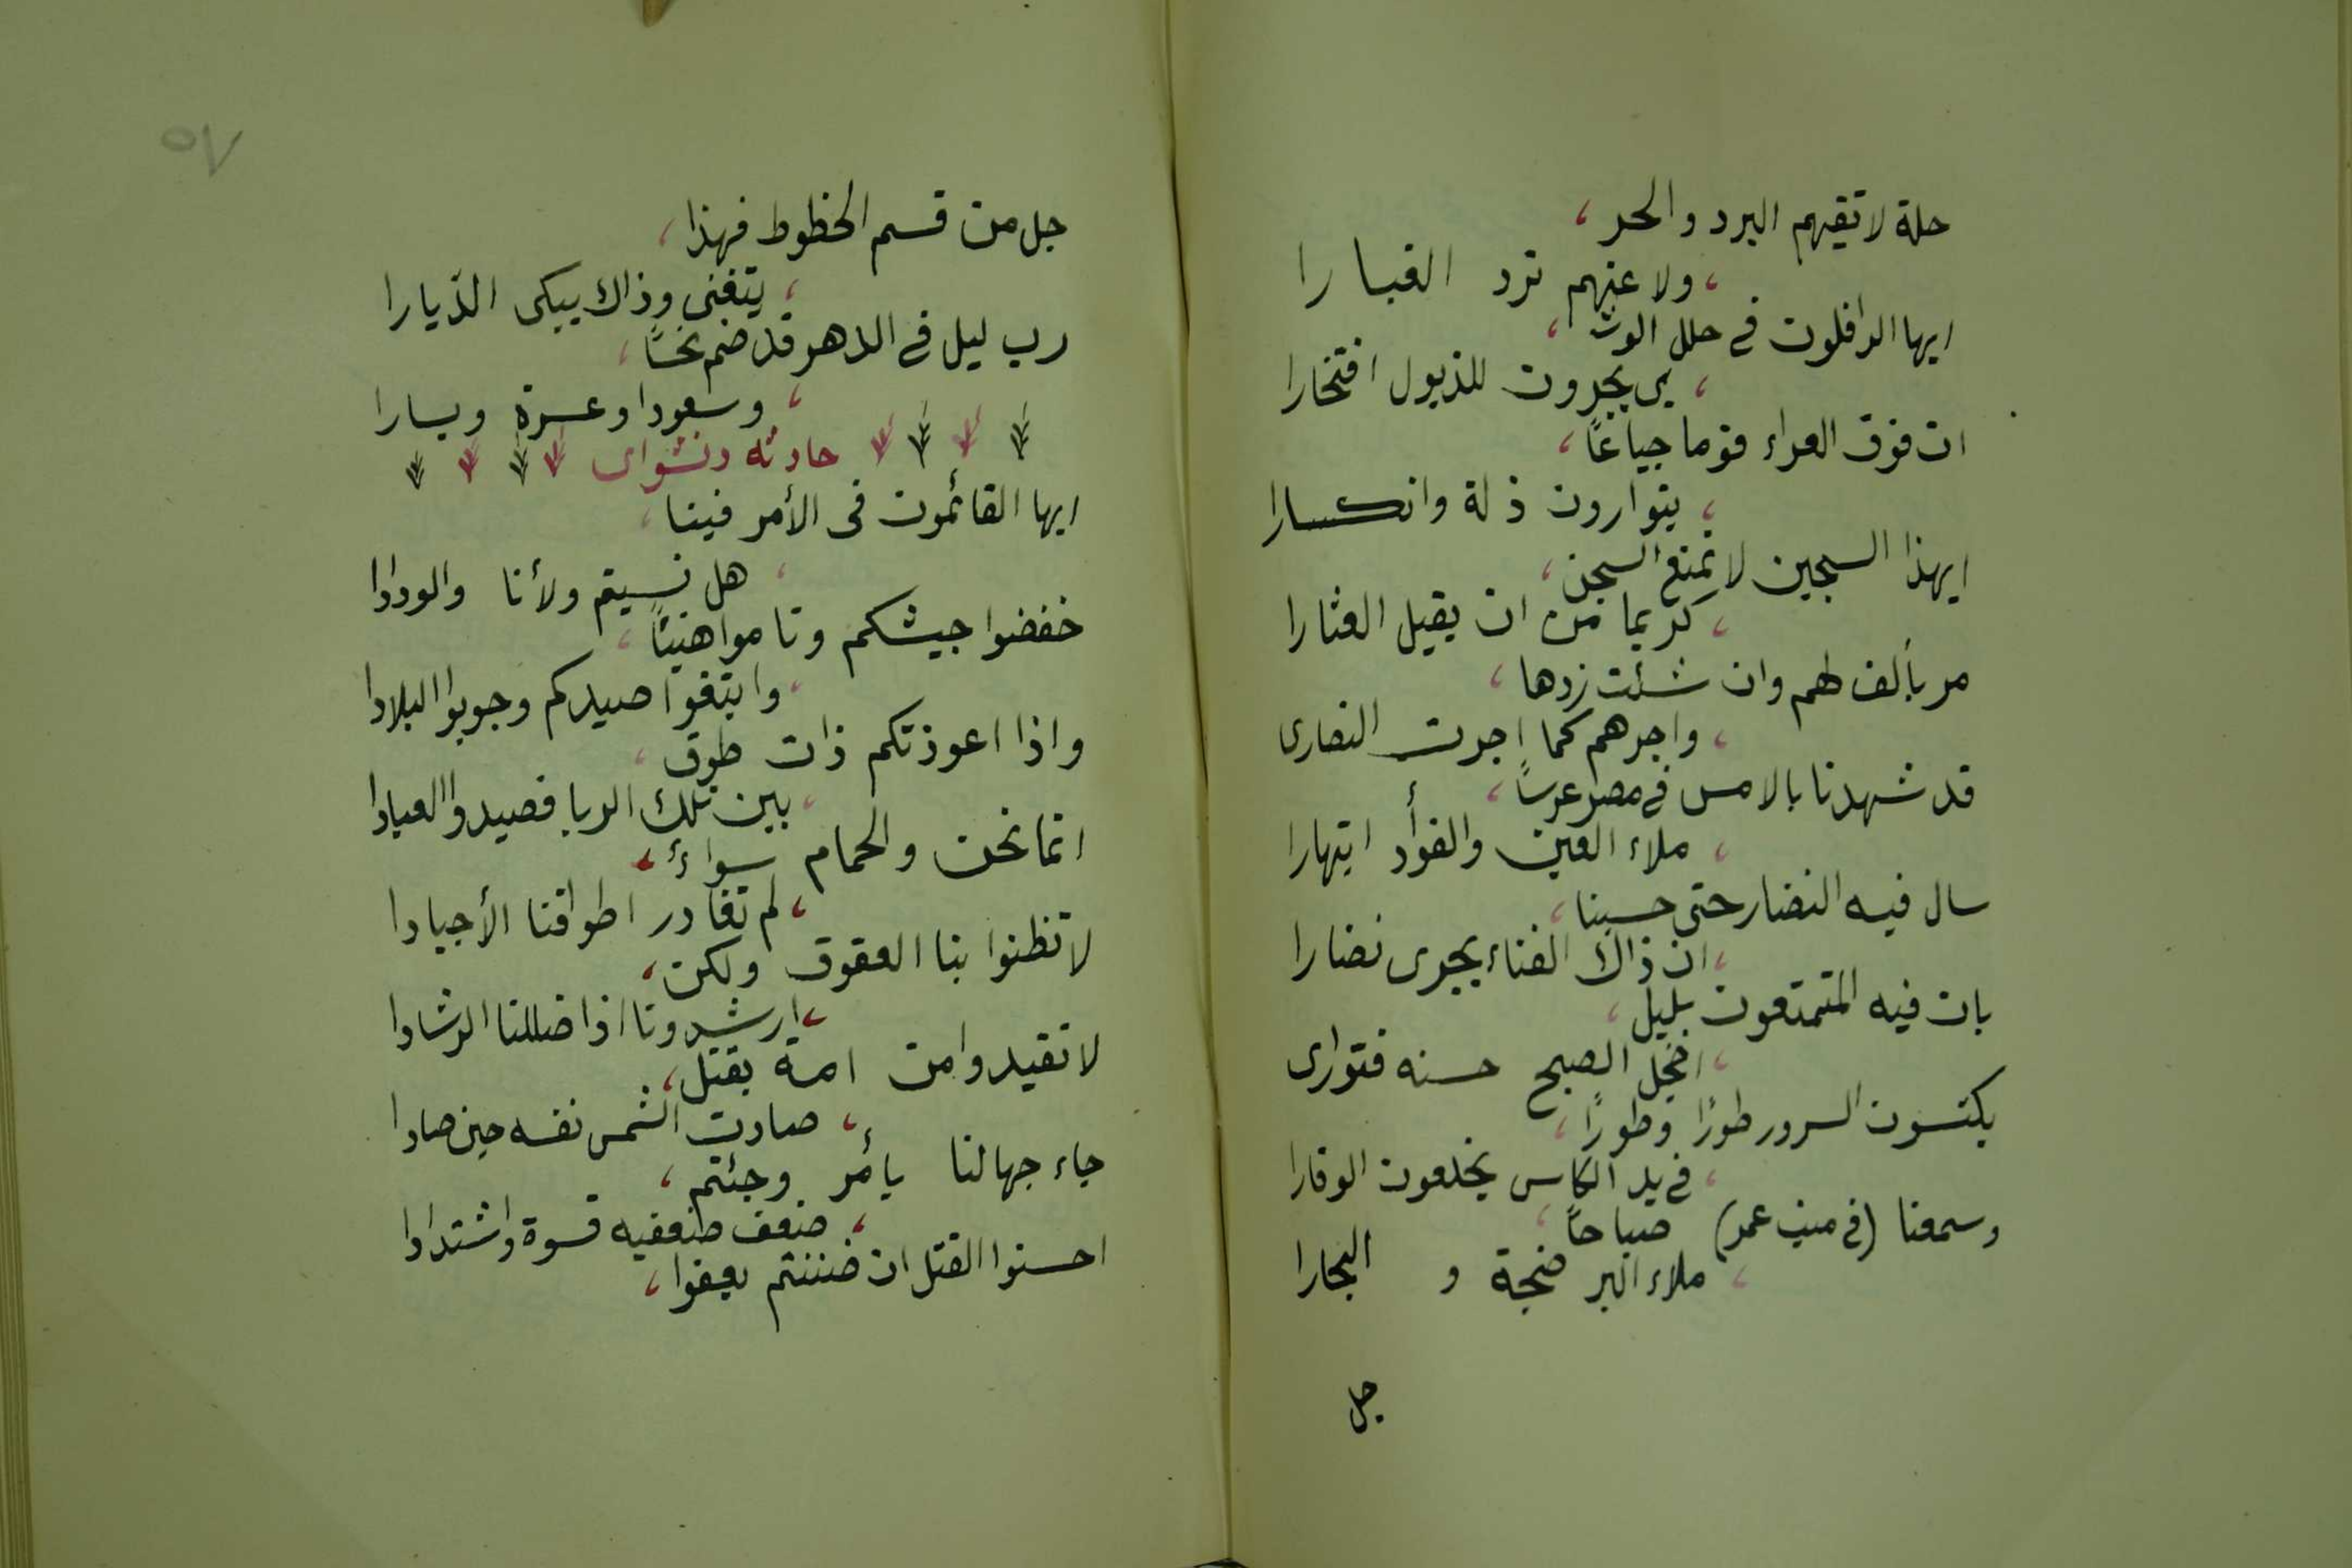 حلة لا تقيهم البرد والحر،
، ولا عنهم ترد الغبارا
ايها الرافلون في حلل الوش،
، ي يجرون للذيول افتخارا
ان فوق العراء قوما جياعًا،
، يتوارون ذلة وانكسارا
ايهذا السجين لا تمنع السجن،
، كريما من ان يقيل العثارا
مر بألف لهم وان شئت زدها،
، واجرهم كما اجرت النصارى
قد شهدنا بالامس في مصر عرسًا،
، ملاء العين والفؤأد ابتهارا
سال فيه النضار حتى حسبنا،
، ان ذاك الفناء يجرى نضارا
بات فيه المتمتعون بليل،
، اخجل الصبح حسنه فتوارى
يكتسون السرور طورًا وطورًا،
، في يد الكاس يخلعون الوقارا
وسمعنا (في ميت عمر) صباحًا،
، ملاء البر ضجة و البحارا
جل
٥٧
جل من قسم الحظوظ فهذا،
، يتغنى وذاك يبكى الدّيارا
رب ليل في الدهر قد ضم نحسًا،
، وسعودا وعسرة ويسارا
حادثه دنشواى
ايها القائمون فى الأمر فينا،
، هل نسيتم ولأنا والودادا
خفضوا جيشكم ونامواهنيئًا،
، وابتغوا صيدكم وجوبوا البلادا
واذا اعوذتكم ذات طوق،
، بين تلك الربا فصيدوا العبادا
انما نحن والحمام سواءٌ،
، لم تغادر اطواقنا الأجيادا
لا تظنوا بنا العقوق ولكن،
، ارشدونا اذا ضللنا الرشادا
لا تقيدوا من امة بقتل،
، صادت الشمس نفسه حين صادا
جاء جهالنا بأمر وجئتم،
، ضعف ضعفيه قسوة واشتدادا
احسنوا القتل ان ضننتم بعفوا،